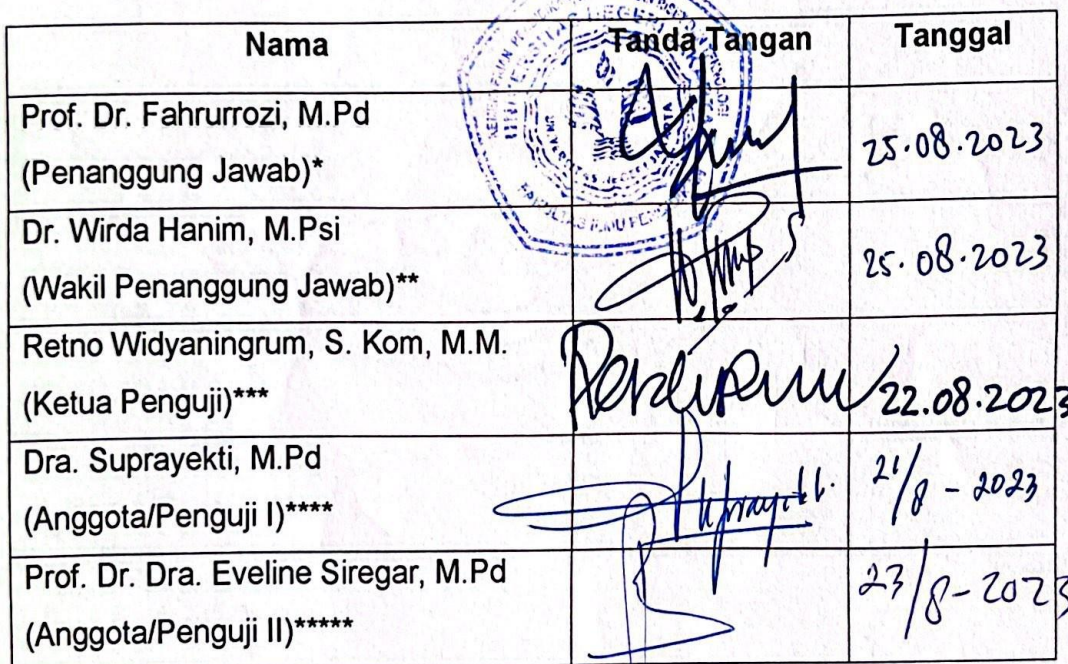 Nama Tanda Tangan Tanggal
Prof. Dr. Fahrurrozi, M.Pd
(Penanggung Jawab)* 25.08.2023
Dr. Wirda Hanim, M.Psi
(Wakil Penanggung Jawab)** 25.08.2023
Retno Widyaningrum, S. Kom, M.M.
(Ketua Penguji)*** 22.08.2023
Dra. Suprayekti, M.Pd
(Anggota/Penguji I)**** 21/8 - 2023
Prof. Dr. Dra. Eveline Siregar, M.Pd
(Anggota/Penguji II)***** 23/8 - 2023